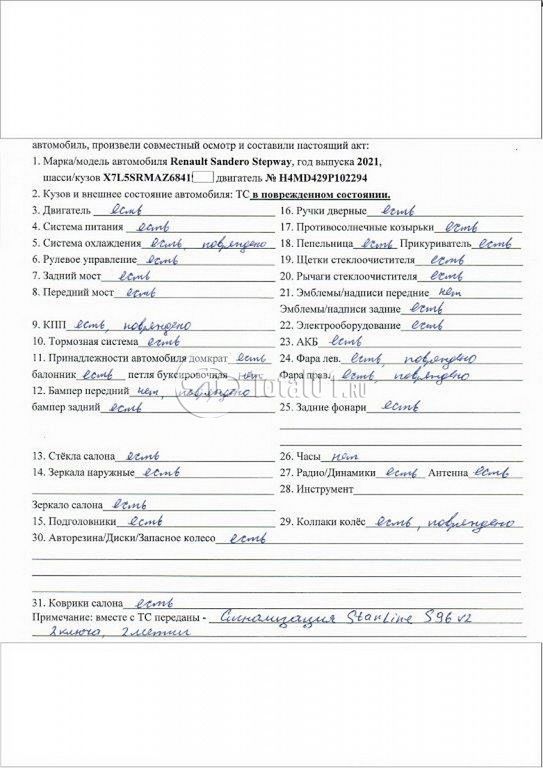 автомобиль, произвели совместный осмотр и составили настоящий акт:
1. Марка/модель автомобиля Renault Sandero Stepway, год выпуска 2021,
шасси/кузов X7L5SRMAZ6841 двигатель № H4MD429P102294
2. Кузов и внешнее состояние автомобиля: ТС в поврежденном состоянии.
3. Двигатель есть
4. Система питания есть
5. Система охлаждения есть, повреждено
6. Рулевое управление есть
7. Задний мост есть
8. Передний мост есть
9. КПП есть, повреждено
10. Тормозная система есть
11. Принадлежности автомобиля домкрат есть
балонник есть петля буксировочная нет
12. Бампер передний нет, повреждено
бампер задний есть
13. Стёкла салона есть
14. Зеркала наружные есть
Зеркало салона есть
15. Подголовники есть
16. Ручки дверные есть
17. Противосолнечные козырьки есть
18. Пепельница есть Прикуриватель есть
19. Щетки стеклоочистителя есть
20. Рычаги стеклоочистителя есть
21. Эмблемы/надписи передние нет
Эмблемы/надписи задние есть
22. Электрооборудование есть
23. АКБ есть
24. Фара лев. есть, повреждено
Фара прав. есть, повреждено
25. Задние фонари есть
26. Часы нет
27. Радио/Динамики есть Антенна есть
28. Инструмент
29. Колпаки колёс есть, повреждено
30. Авторезина/Диски/Запасное колесо есть
31. Коврики салона есть
Примечание: вместе с ТС переданы - Сигнализация StarLine S96 v2
2 ключа, 2 метки
Total01.RU